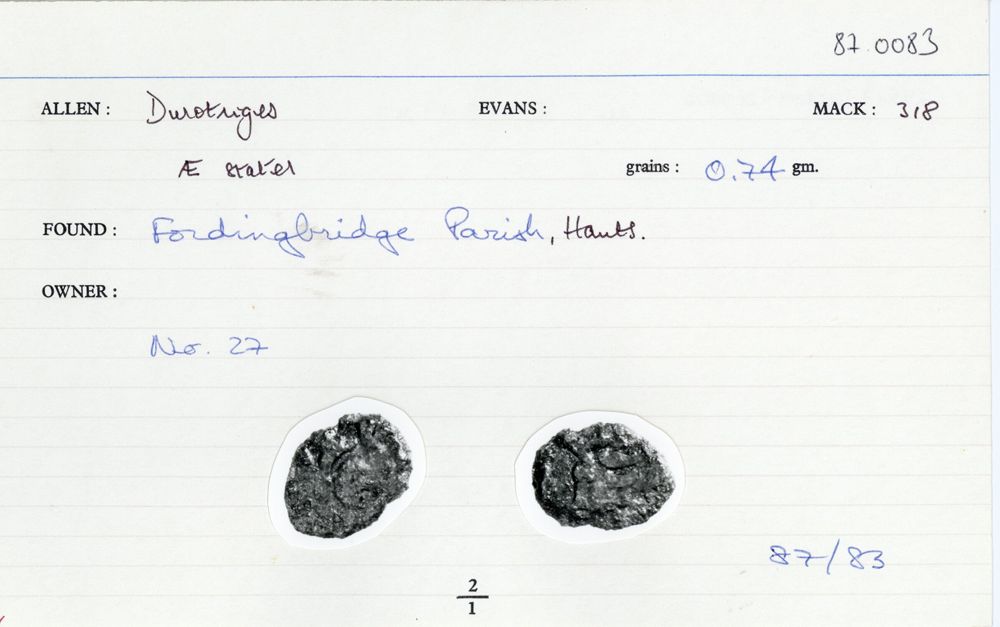 87.0083
ALLEN : Durotriges EVANS : MACK : 318
Æ stater grains : 0.74 gm.
FOUND : Fordingbridge Parish, Hants.
OWNER :
No. 27
87/83
2
1